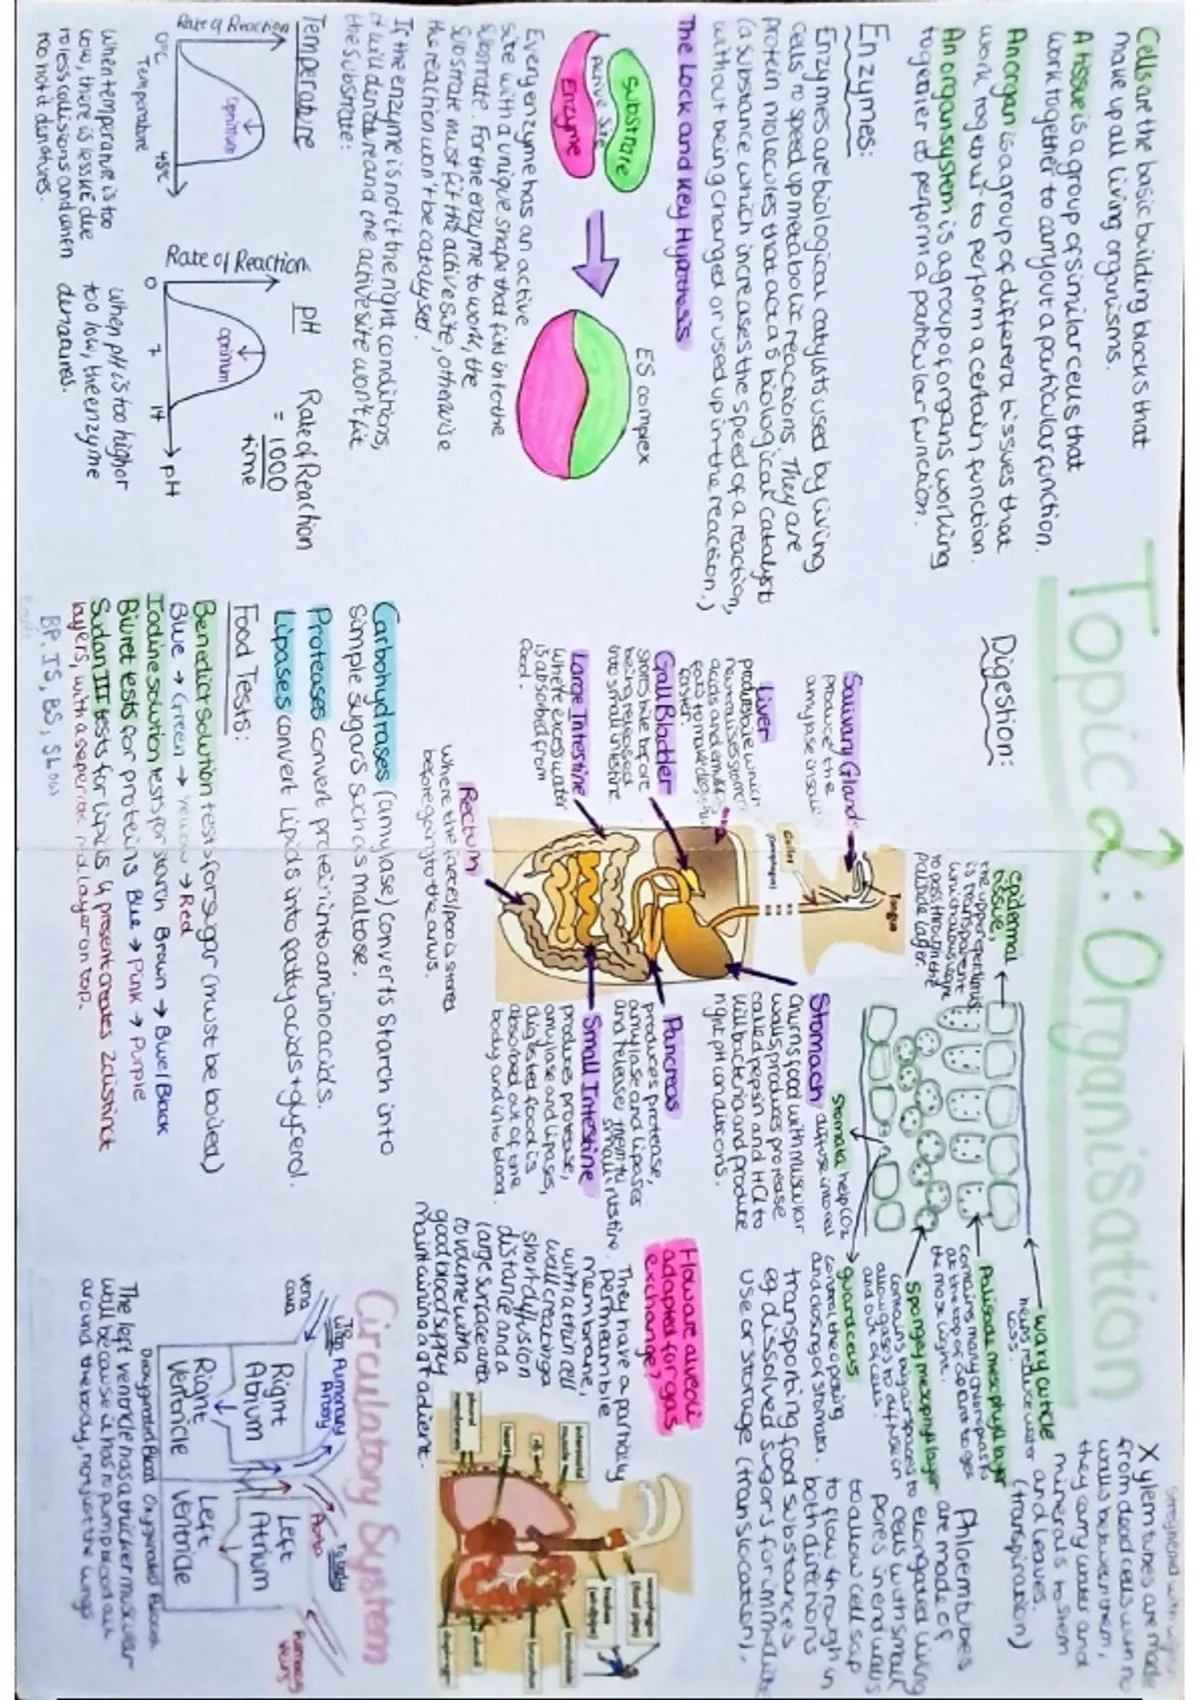 Topic 2: Organisation
Cells are the basic building blocks that
make up all living organisms.
A tissue is a group of similar cells that
work together to carry out a particular function.
An organ is a group of different tissues that
work together to perform a certain function.
An organ system is a group of organs working
together to perform a particular function.
Enzymes:
Enzymes are biological catalysts used by living
cells to speed up metabolic reactions. They are
protein molecules that act as biological catalysts
(a substance which increases the speed of a reaction,
without being changed or used up in the reaction.)
The Lock and Key Hypothesis
Substrate
Active Site
Enzyme
ES complex
Every enzyme has an active
site with a unique shape that fits into the
substrate. For the enzyme to work, the
substrate must fit the active site, otherwise
the reaction won't be catalysed.
If the enzyme is not in the right conditions,
it will denature and the active site won't fit
the substrate:
Temperature
Rate of Reaction
optimum
0°C
Temperature
45°C
When temperature is too
low, there is less KE due
to less collisions and when
too hot it denatures.
pH
Rate of Reaction
optimum
0
7
14
pH
Rate of Reaction
= 1000
time
When pH is too high or
too low, the enzyme
denatures.
Digestion:
Salivary Glands
produce the
amylase in
Liver
produces bile which
neutralises
Gall Bladder
stores bile before
being released
into small intestine
Large Intestine
where excess water
is absorbed from
food.
Rectum
where the faeces/poo is stored
before going to the anus.
Tongue
Gullet
(oesophagus)
Stomach
churns food with muscular
walls, produces protease
called pepsin and HCl to
kill bacteria and produce
right pH conditions.
Pancreas
produces protease,
amylase and lipases
and release them to
small intestine.
Small Intestine
produces protease,
amylase and lipases,
digested food is
absorbed out of the
body and into blood.
Carbohydrases (amylase) converts Starch into
simple sugars such as maltose.
Proteases convert protein into amino acids.
Lipases convert Lipids into fatty acids + glycerol.
Food Tests:
Benedict solution tests for sugar (must be boiled)
Blue → Green → Yellow → Red
Iodine solution tests for starch Brown → Blue/Black
Biuret tests for proteins Blue → Pink → Purple
Sudan III tests for lipids if present creates 2 distinct
layers, with a seperate red layer on top.
BP, IS, BS,
epidermal
tissue,
the upper epidermis
is transparent
which allows light
to pass through the
palisade layer.
waxy cuticle
helps reduce water
loss.
Palisade mesophyll layer
contains many chloroplasts
at the top of a plant to get
the most light.
Spongey mesophyll layer
contains big air spaces to
allow gases to diffuse in
and out of cells.
Stomata help CO2
diffuse into cell
guard cells
control the opening
and closing of stomata.
Xylem tubes are made
from dead cells with no
walls between them,
they carry water and
minerals to stem
and leaves.
(transpiration)
Phloem tubes
are made of
elongated living
cells with small
pores in end walls
to allow cell sap
to flow through in
both directions
transporting food substances
eg dissolved sugars for immediate
use or storage (translocation).
How are alveoli
adapted for gas
exchange?
They have a partially
permeable
membrane,
with a thin cell
wall creating a
short diffusion
distance and a
large surface area
to volume with a
good blood supply
maintaining a gradient.
Circulatory System
vena
cava
Pulmonary
Artery
Aorta
To body
Pulmonary
Veins
Right
Atrium
Left
Atrium
Right
Ventricle
Left
Ventricle
Deoxygenated Blood
Oxygenated Blood
The left ventricle has a thicker muscular
wall because it has to pump blood all
around the body, not just the lungs.